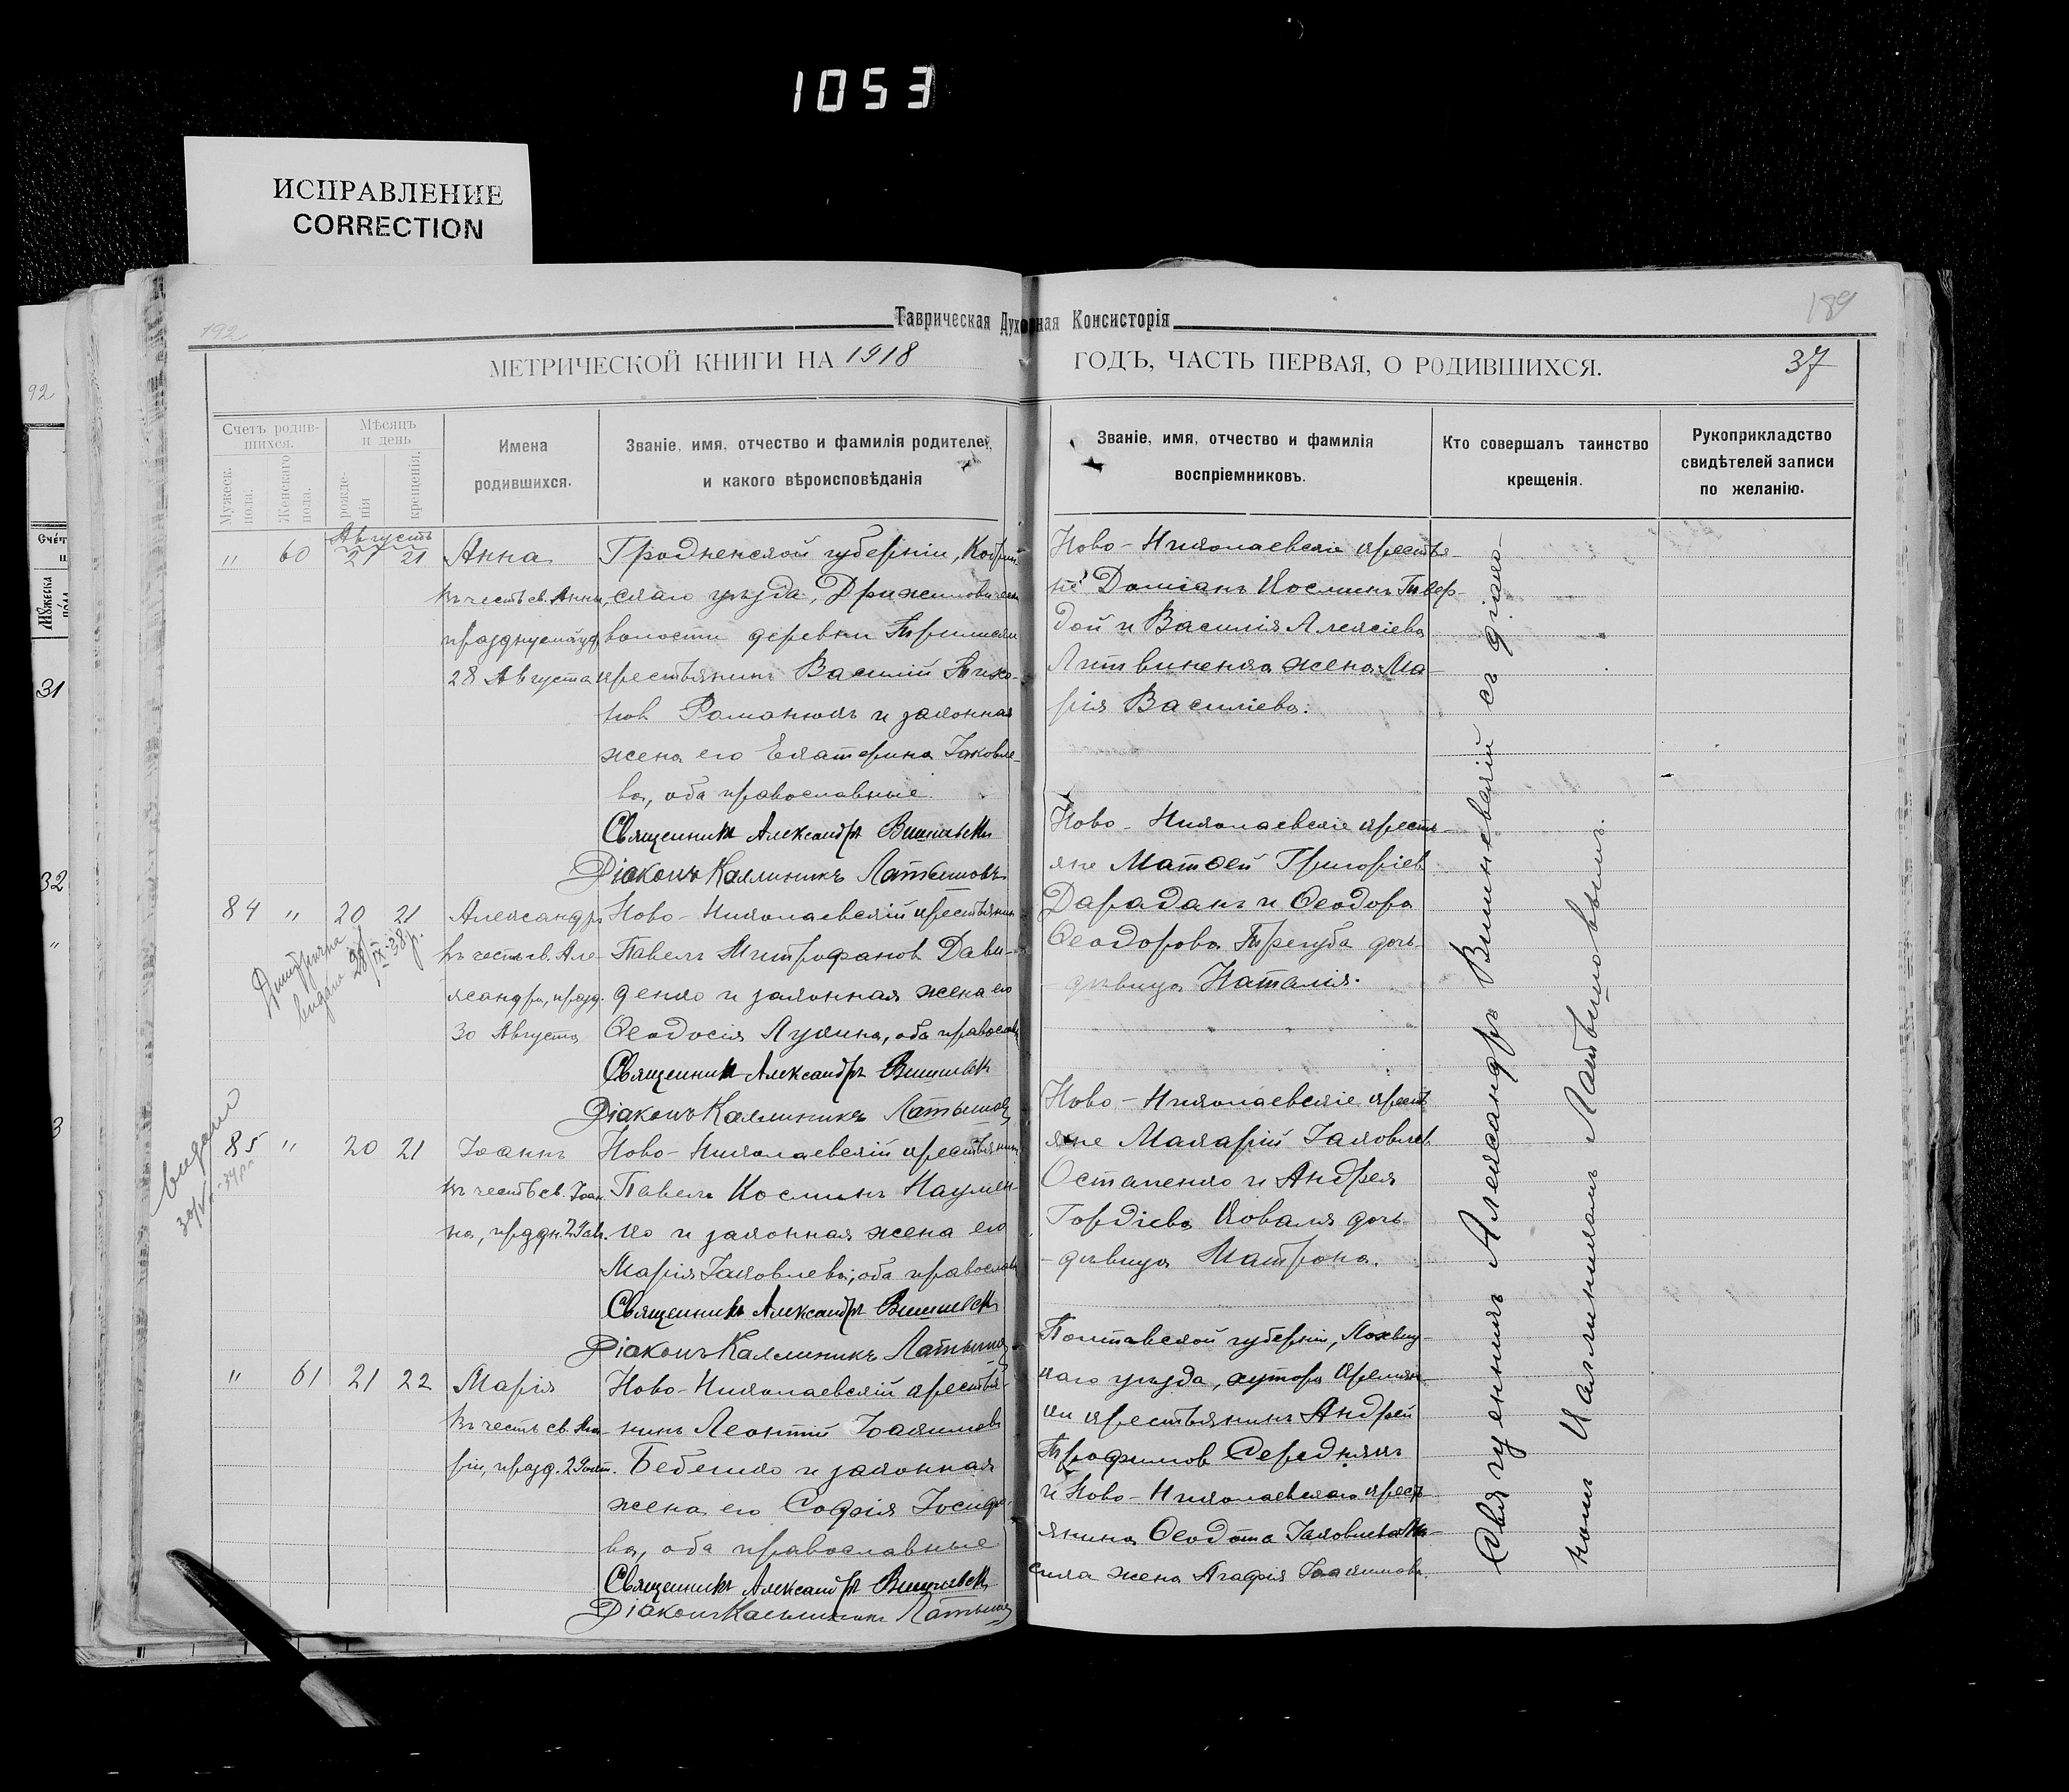 1053
ИСПРАВЛЕНИЕ
CORRECTION
Таврическая Духовная Консисторія
192
189
МЕТРИЧЕСКОЙ КНИГИ НА 1918 ГОДЪ, ЧАСТЬ ПЕРВАЯ, О РОДИВШИХСЯ.
37
Счетъ родив-
шихся.
Мужеск.
пола.
Женскаго
пола.
Мѣсяцъ
и день
рожде-
нія
крещенія.
Имена
родившихся.
Званіе, имя, отчество и фамилія родителей,
и какого вѣроисповѣданія
Званіе, имя, отчество и фамилія
воспріемниковъ.
Кто совершалъ таинство
крещенія.
Рукоприкладство
свидѣтелей записи
по желанію.
92
31
32
Августъ
" 60 21 21
Анна
въ честь св. Анны,
празднуемой
28 Августа
Гродненской губерніи,
скаго уѣзда,
волости деревни
крестьянинъ Василій
нов Романюкъ и законная
жена его Екатерина Іаковле-
ва, оба православные.
Священникъ Александръ
Діаконъ Каллиникъ Латышовъ
Ново-Николаевскіе крестья-
не Доміанъ Косминъ Твер-
дой и Василія Алексіева
Литвиненка жена Ма-
рія Василіева.
84 " 20 21
Александръ
въ честь св. Але-
ксандра, празд.
30 Августа
Ново-Николаевскій крестьянинъ
Павелъ Митрофанов Дави-
денко и законная жена его
Ѳеодосія Лукина, оба православ
Священникъ Александръ
Діаконъ Каллиникъ Латышовъ
Ново-Николаевскіе крестья-
яне Матѳей Григоріев
Дарадакъ и Ѳеодора
Ѳеодорова Трегуба дочь-
дѣвица Наталія.
видано 28/IX-38р.
85 " 20 21
Іоаннъ
въ честь св. Іоан
на, праздн. 29 авг.
Ново-Николаевскій крестьянинъ
Павелъ Косминъ Наумен-
ко и законная жена его
Марія Іаковлева, оба православ
Священникъ Александръ
Діаконъ Каллиникъ Латышовъ
Ново-Николаевскіе крест
яне Макарій Іаковлев
Остапенко и Андрея
Гордіева Коваля дочь-
-дѣвица Матрона.
видано
" 61 21 22
Марія
въ честь св. Ма-
ріи, празд.
Ново-Николаевскій крестья-
нинъ Леонтій Іоакимовъ
Бебешко и законная
жена его Софія Іосифо-
ва, оба православные
Священникъ Александръ
Діаконъ Каллиникъ Латышовъ
Полтавской губерніи, Лохвиц-
каго уѣзда, хутора
ки крестьянинъ Андрей
Трофимов Середнякъ
и Ново-Николаевскаго крест-
янина Ѳеодота Іаковлева
жена Агафія Іоакимова.
Священникъ Александръ Вишневскій съ діако-
номъ Каллиникомъ Латышовымъ.